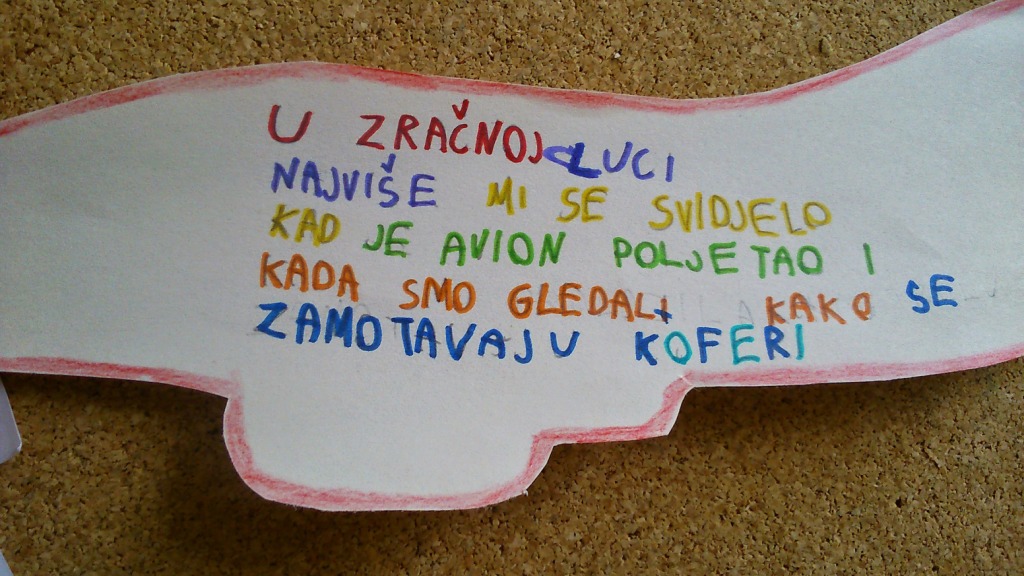 U ZRAČNOJ LUCI
NAJVIŠE MI SE SVIDJELO
KAD JE AVION POLJETAO I
KADA SMO GLEDALI KAKO SE
ZAMOTAVAJU KOFERI